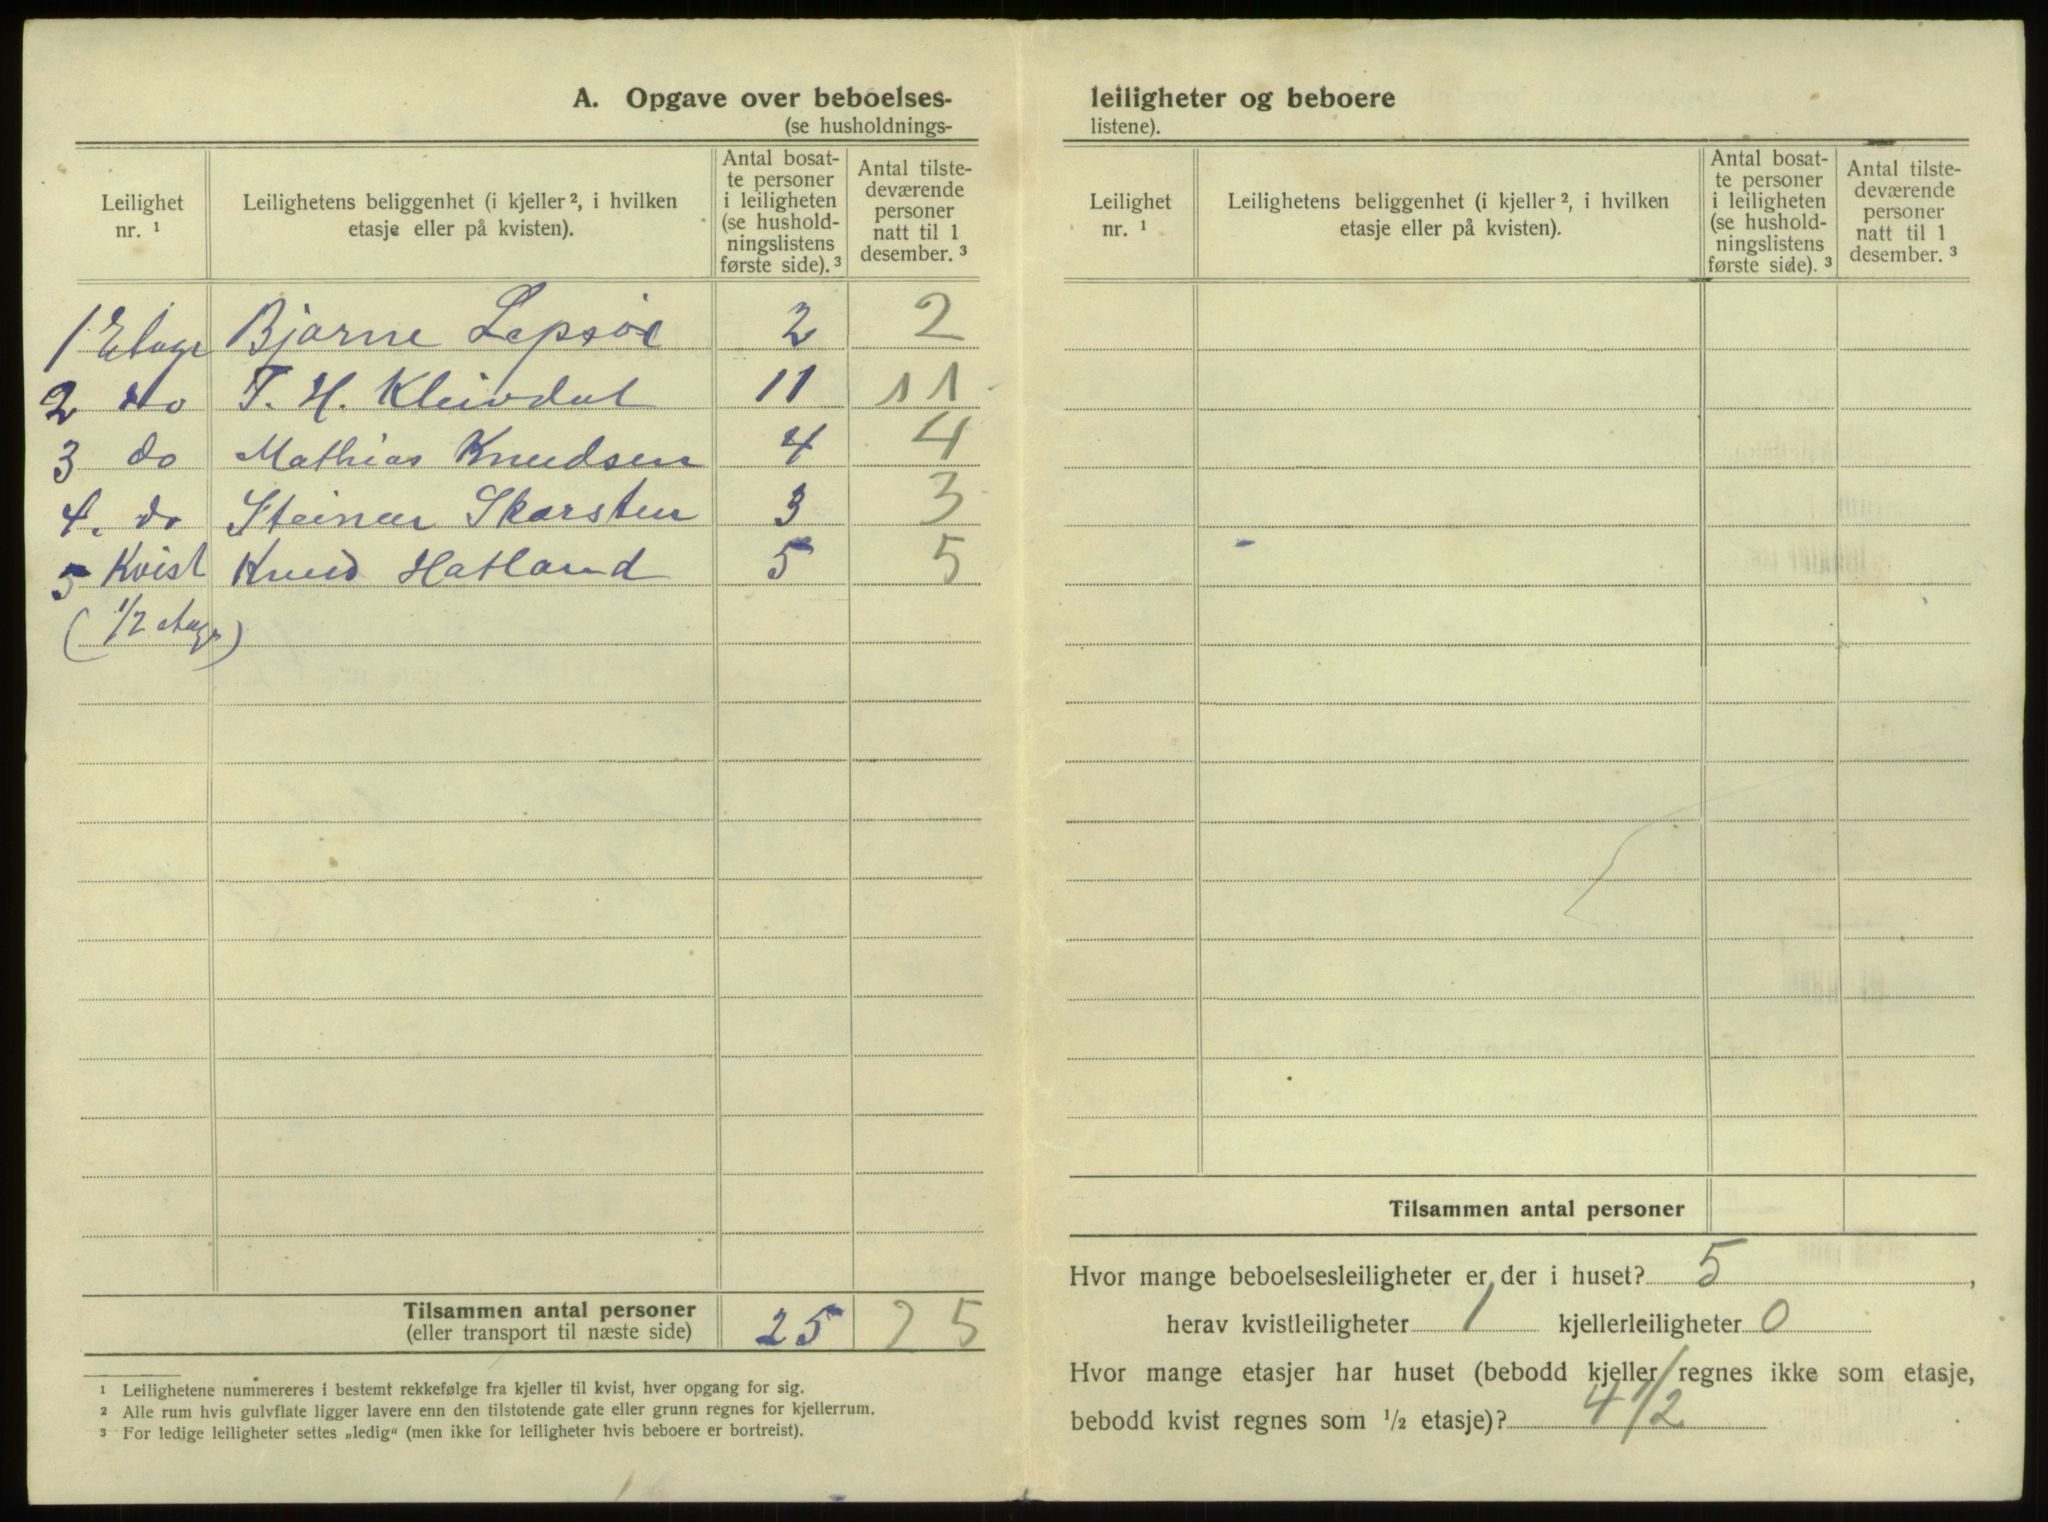 A. Opgave over beboelses-
(se husholdnings-
Leilighet nr. ¹
Leilighetens beliggenhet (i kjeller ², i hvilken
etasje eller på kvisten).
Antal bosat-
te personer
i leiligheten
(se hushold-
ningslistens
første side). ³
Antal tilste-
deværende
personer
natt til 1
desember. ³
1 Etage Bjarne Lepsöe 2 2
2 do T. H. Kleivdal 11 11
3 do Mathias Knudsen 4 4
4. do Steinar Skarsten 3 3
5 Kvist Knud Hatland 5 5
(1/2 etage)
Tilsammen antal personer 25 25
(eller transport til næste side)
¹ Leilighetene nummereres i bestemt rekkefølge fra kjeller til kvist, hver opgang for sig.
² Alle rum hvis gulvflate ligger lavere enn den tilstøtende gate eller grunn regnes for kjellerrum.
³ For ledige leiligheter settes „ledig“ (men ikke for leiligheter hvis beboere er bortreist).
leiligheter og beboere
listene).
Leilighet
nr. ¹
Leilighetens beliggenhet (i kjeller ², i hvilken
etasje eller på kvisten).
Antal bosat-
te personer
i leiligheten
(se hushold-
ningslistens
første side). ³
Antal tilste-
deværende
personer
natt til 1
desember. ³
Tilsammen antal personer
Hvor mange beboelsesleiligheter er der i huset? 5,
herav kvistleiligheter 1 kjellerleiligheter 0
Hvor mange etasjer har huset (bebodd kjeller regnes ikke som etasje,
bebodd kvist regnes som ½ etasje)? 4 1/2